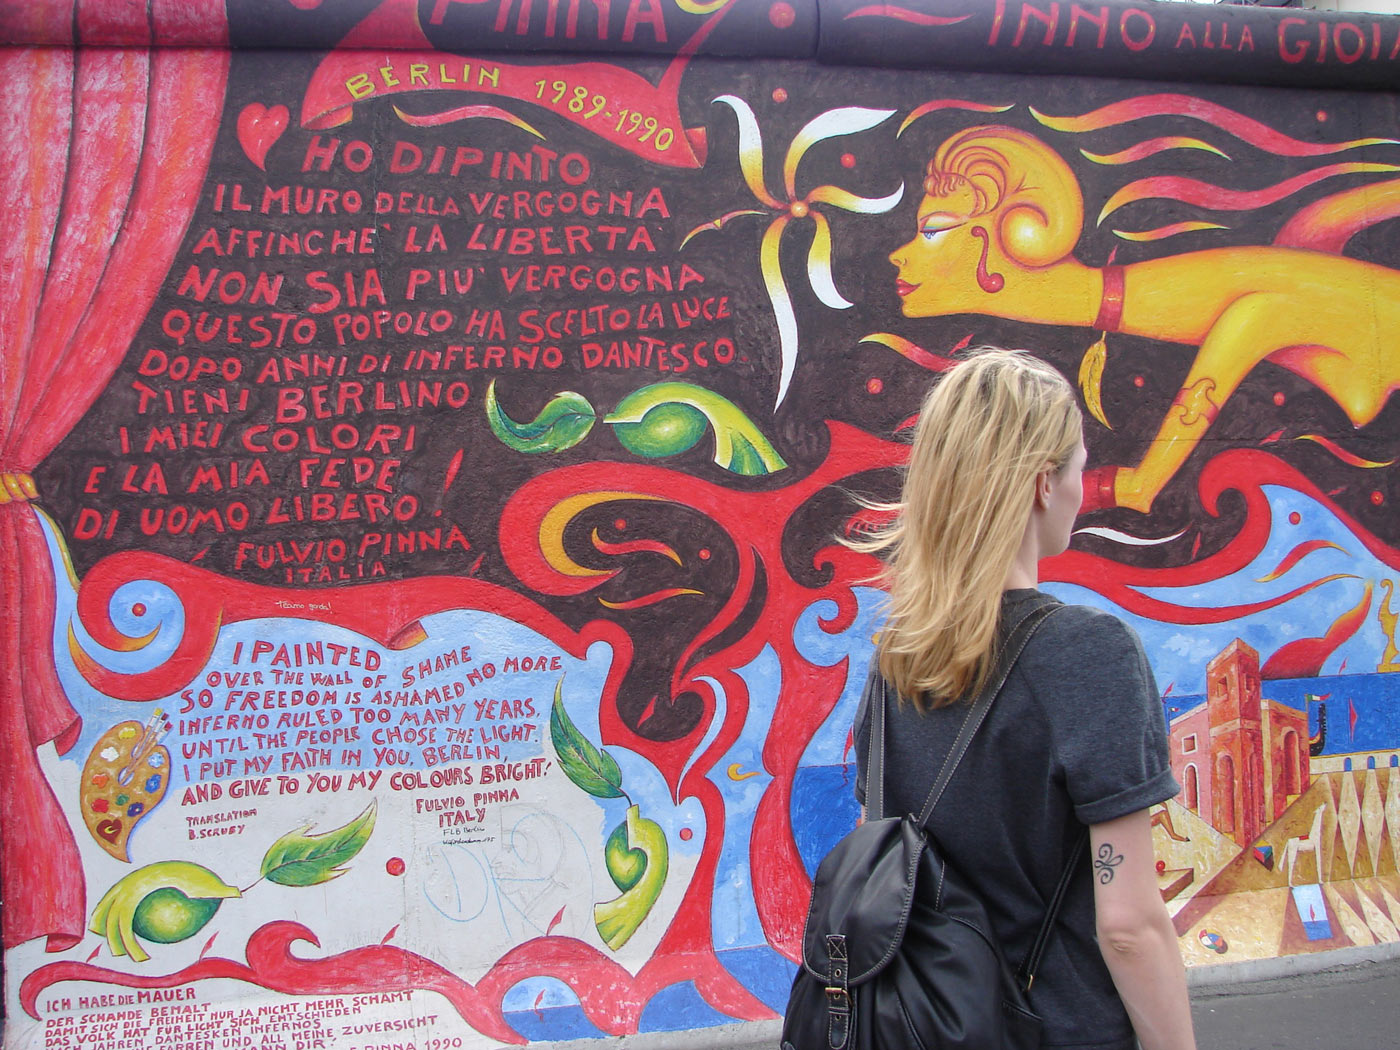 PINNA
INNO ALLA GIOIA
BERLIN 1989-1990
HO DIPINTO
IL MURO DELLA VERGOGNA
AFFINCHE' LA LIBERTA'
NON SIA PIU' VERGOGNA
QUESTO POPOLO HA SCELTO LA LUCE
DOPO ANNI DI INFERNO DANTESCO.
TIENI BERLINO
I MIEI COLORI
E LA MIA FEDE
DI UOMO LIBERO!
FULVIO PINNA
ITALIA
I PAINTED
OVER THE WALL OF SHAME
SO FREEDOM IS ASHAMED NO MORE
INFERNO RULED TOO MANY YEARS,
UNTIL THE PEOPLE CHOSE THE LIGHT.
I PUT MY FAITH IN YOU, BERLIN,
AND GIVE TO YOU MY COLOURS BRIGHT!
FULVIO PINNA
ITALY
TRANSLATION
B.SCRUBY
FLB Berlin
ICH HABE DIE MAUER
DER SCHANDE BEMALT
DAMIT SICH DIE FREIHEIT NUR JA NICHT MEHR SCHÄMT
DAS VOLK HAT FÜR LICHT SICH ENTSCHIEDEN
NACH JAHREN DANTESKEN INFERNOS
FARBEN UND ALL MEINE ZUVERSICHT
DIR!
F. PINNA 1990